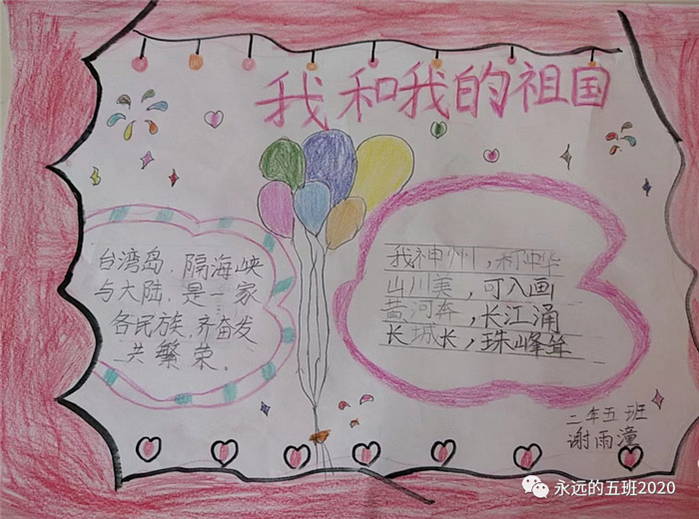 我和我的祖国
台湾岛，隔海峡
与大陆，是一家
各民族，齐奋发
共繁荣。
我神州，称中华
山川美，可入画
黄河奔，长江涌
长城长，珠峰耸
二年五班
谢雨潼
永远的五班2020